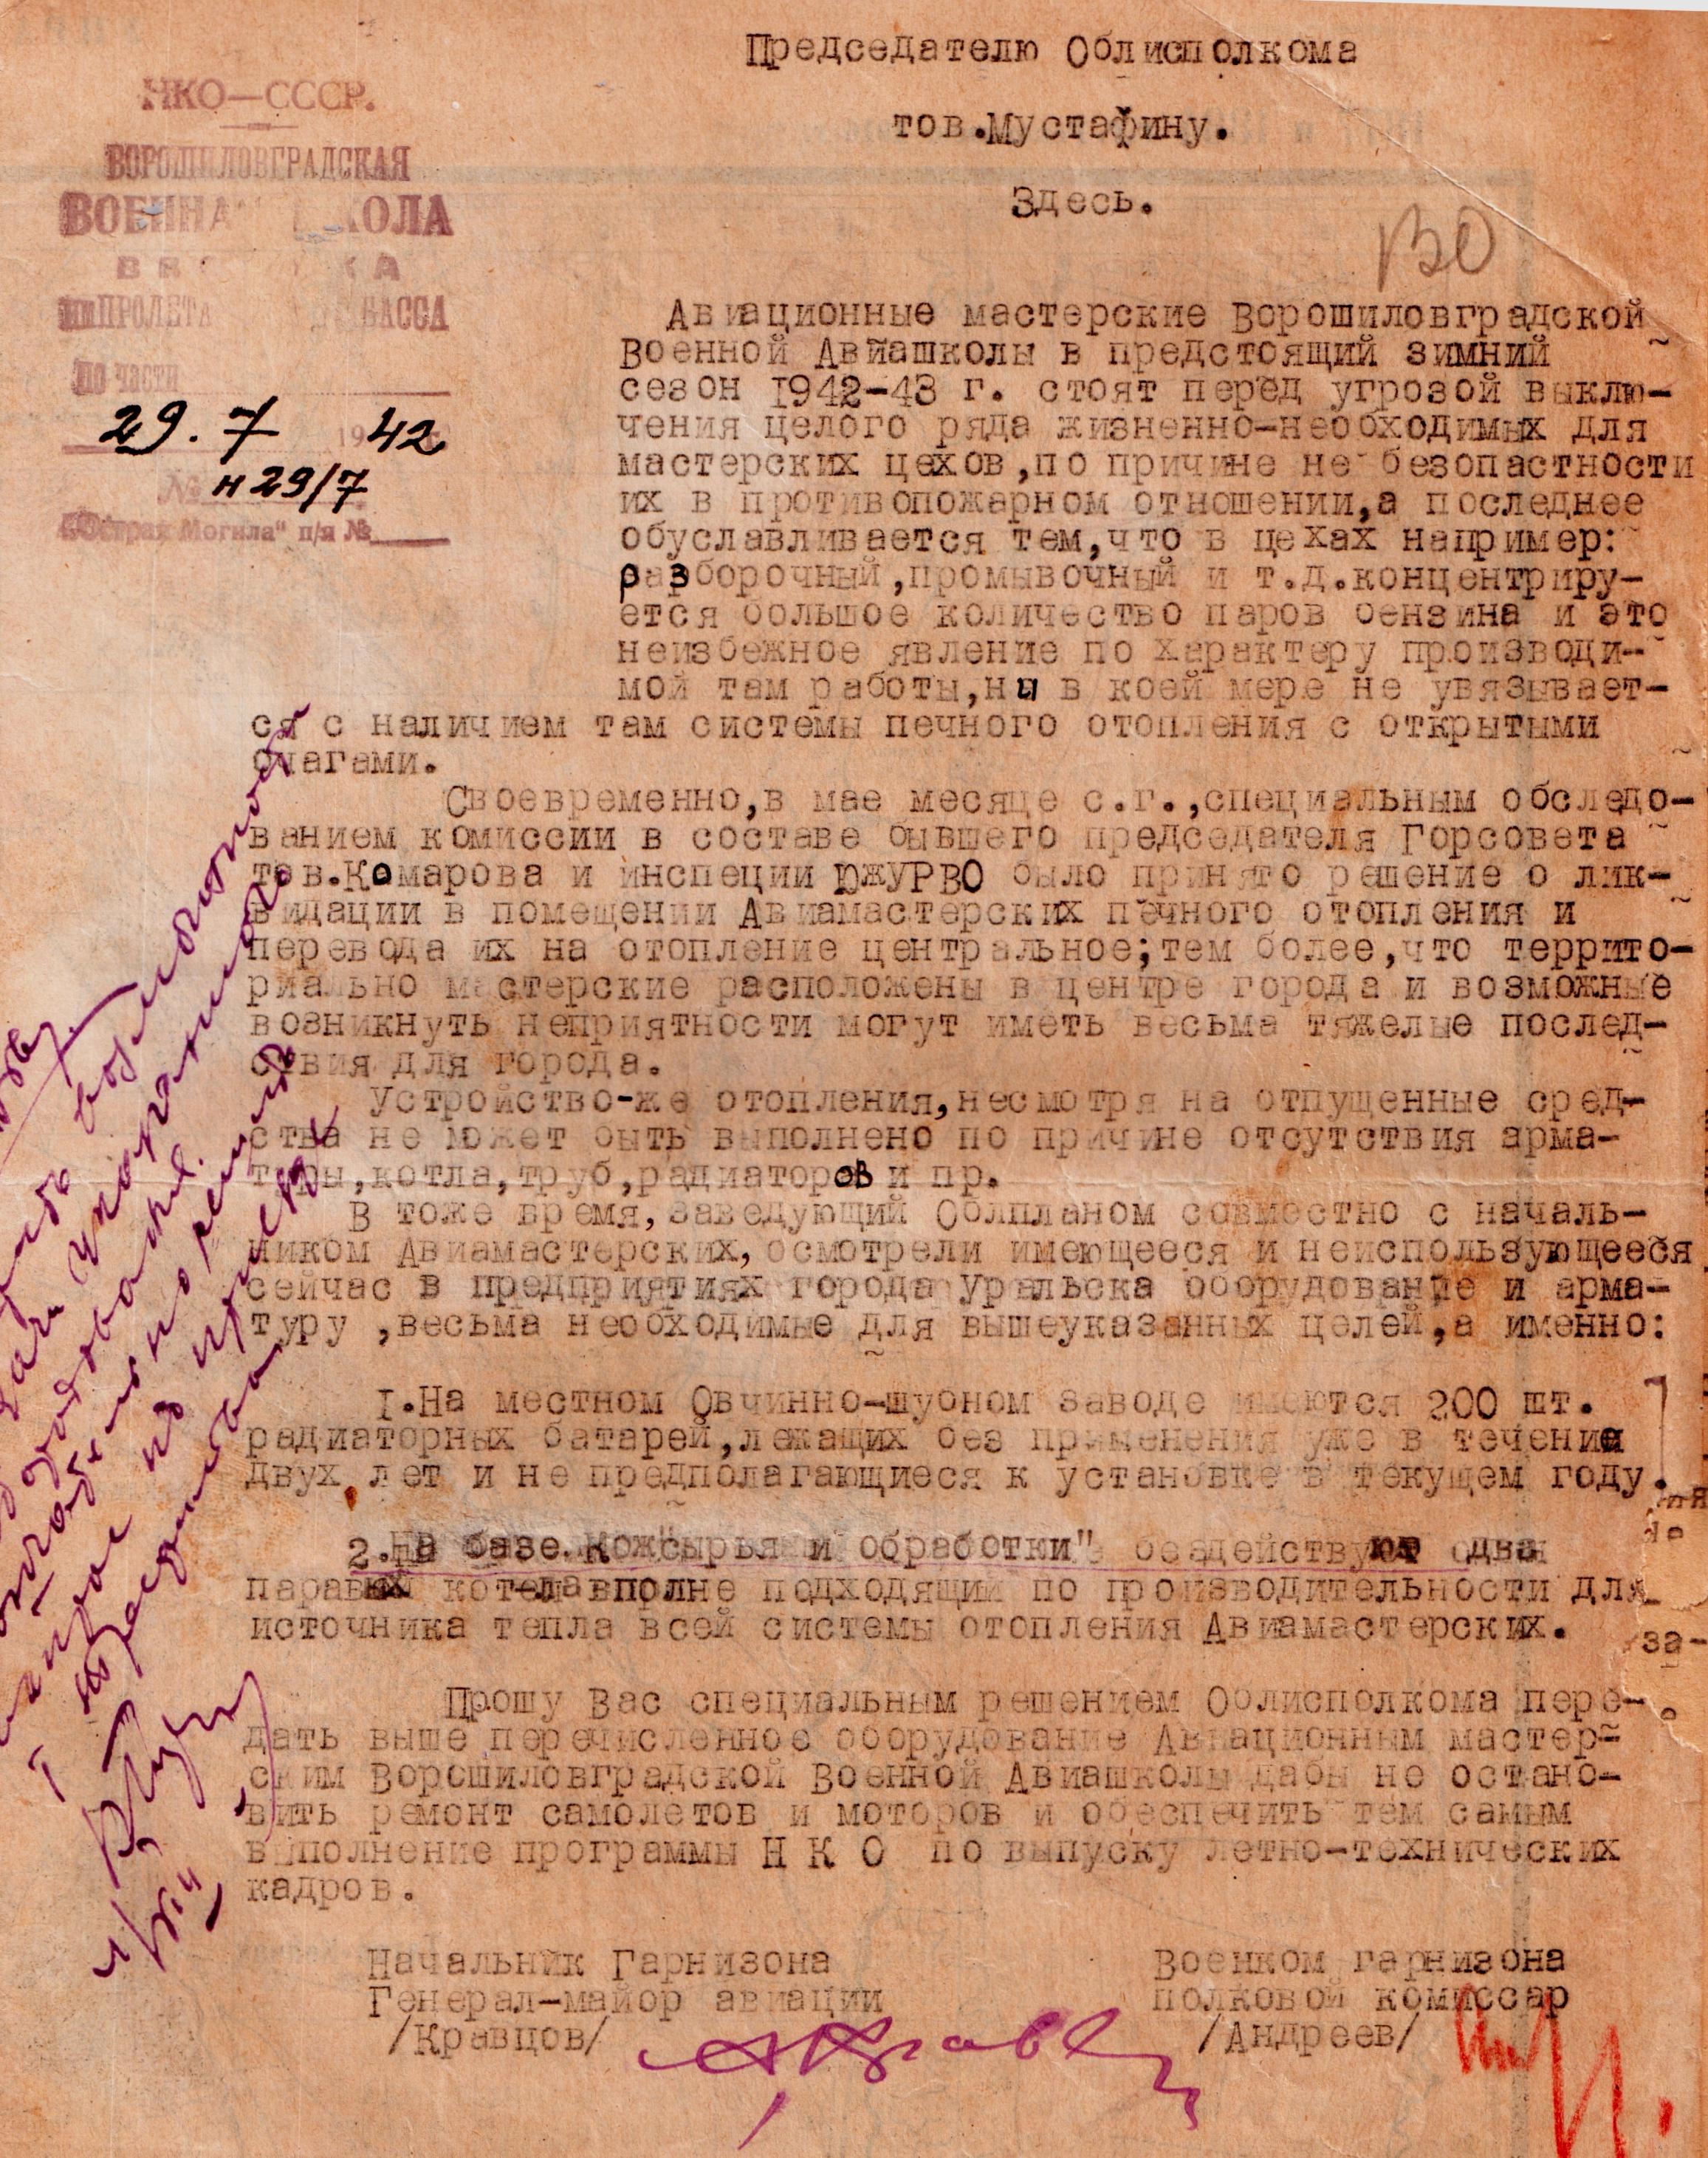 Председателю Облисполкома
тов.Мустафину.
Здесь.
НКО—СССР.
ВОРОШИЛОВГРАДСКАЯ
ВОЕННА ОЛА
по части
29. 7 1942
№ н 29/7
"Острая Могила" п/я №
ВО
Авиационные мастерские Ворошиловградской
Военной Авиашколы в предстоящий зимний
сезон 1942-43 г. стоят перед угрозой выклю-
чения целого ряда жизненно-необходимых для
мастерских цехов,по причине не безопастности
их в противопожарном отношении,а последнее
обуславливается тем,что в цехах например:
разборочный,промывочный и т.д.концентриру-
ется большое количество паров бензина и это
неизбежное явление по характеру производи-
мой там работы,ни в коей мере не увязывает-
ся с наличием там системы печного отопления с открытыми
очагами.
Своевременно,в мае месяце с.г.,специальным обследо-
ванием комиссии в составе бывшего председателя Горсовета
тов.Комарова и инспеции ЮЖУРВО было принято решение о лик-
видации в помещении Авиамастерских печного отопления и
перевода их на отопление центральное;тем более,что террито-
риально мастерские расположены в центре города и возможные
возникнуть неприятности могут иметь весьма тяжелые послед-
ствия для города.
Устройство-же отопления,несмотря на отпущенные сред-
ства не может быть выполнено по причине отсутствия арма-
туры,котла,труб,радиаторов и пр.
В тоже время,заведующий Облпланом совместно с началь-
ником Авиамастерских,осмотрели имеющееся и неиспользующееся
сейчас в предприятиях города Уральска оборудование и арма-
туру ,весьма необходимые для вышеуказанных целей,а именно:
1.На местном Овчинно-шубном заводе имеются 200 шт.
радиаторных батарей,лежащих без применения уже в течении
двух лет и не предполагающиеся к установке в текущем году.
2.На базе Кож"сырья и обработки" бездействуют два
паравых котела вполне подходящии по производительности для
источника тепла всей системы отопления Авиамастерских.
за-
Прошу Вас специальным решением Облисполкома пере-
дать выше перечисленное оборудование Авиационным мастер-
ским Ворошиловградской Военной Авиашколы дабы не остано-
вить ремонт самолетов и моторов и обеспечить тем самым
выполнение программы Н К О по выпуску летно-технических
кадров.
Начальник Гарнизона
Генерал-майор авиации
/Кравцов/
Военком гарнизона
полковой комиссар
/Андреев/